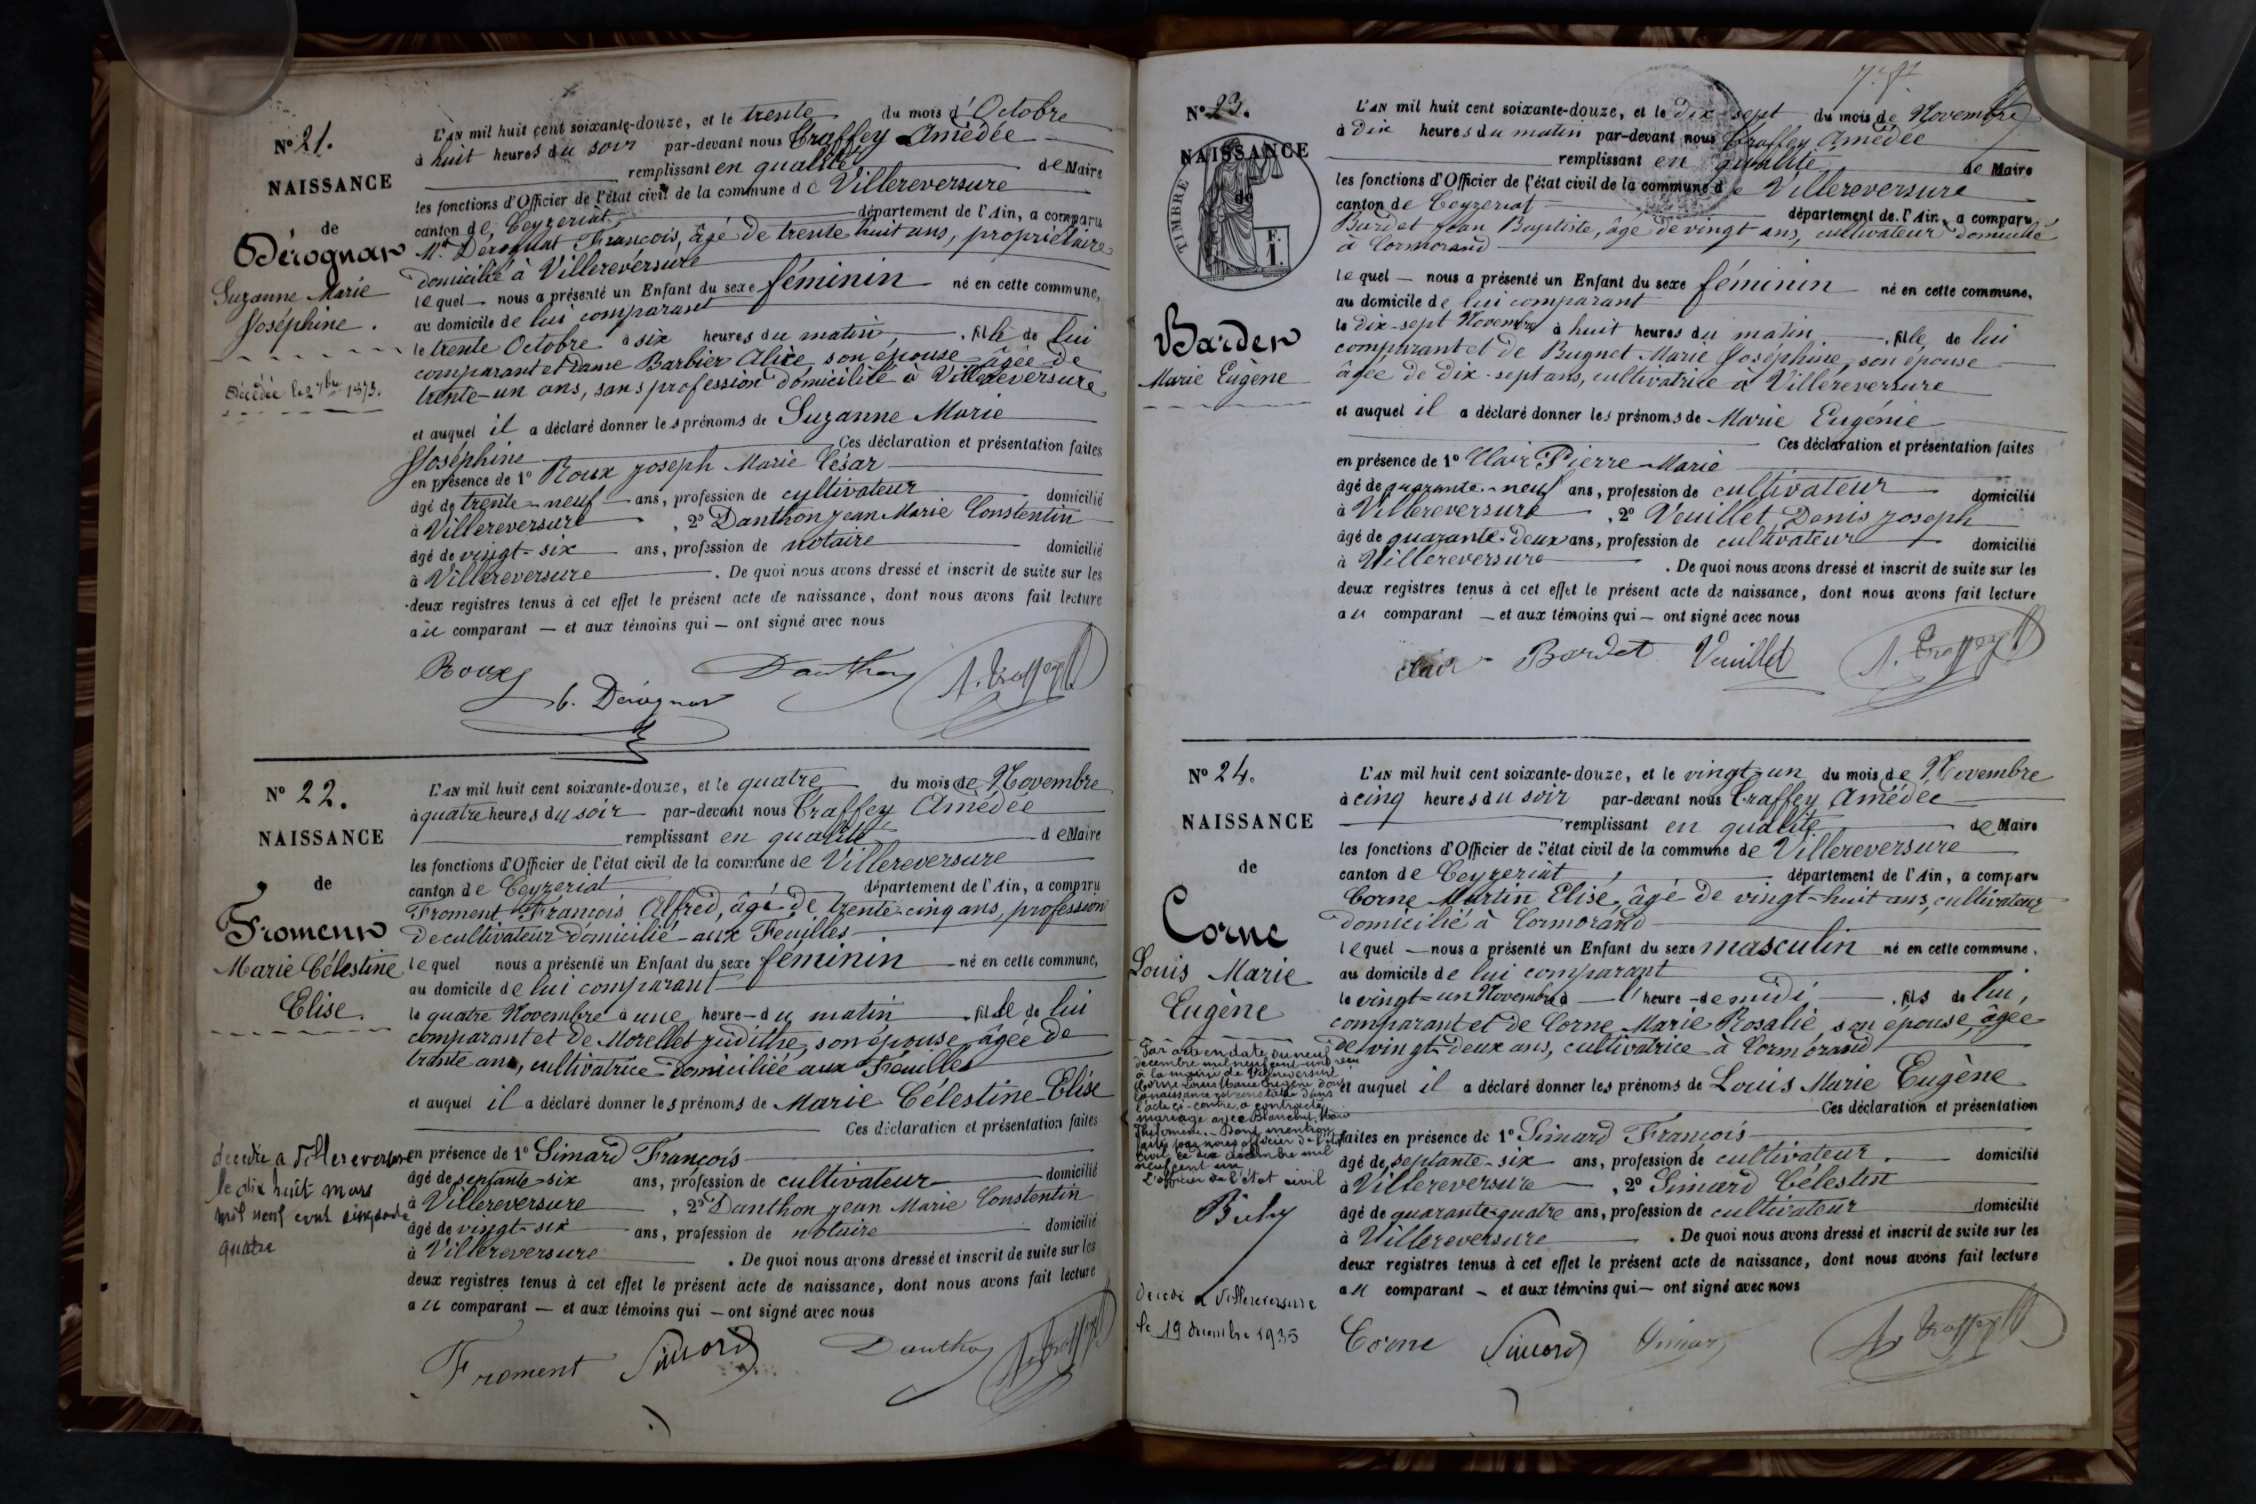 N° 21.
NAISSANCE
de
Dérognat
Suzanne Marie
Joséphine.
Décédée le 2 7bre 1873.
L'AN mil huit cent soixante-douze, et le trente du mois d'Octobre
à huit heures du soir par-devant nous Traffey Amédée
remplissant en qualité de Maire
les fonctions d'Officier de l'état civil de la commune de Villereversure
canton de Ceyzeriat département de l'Ain, a comparu
Mr. Dérognat François, âgé de trente huit ans, propriétaire
domicilié à Villereversure
lequel nous a présenté un Enfant du sexe féminin né en cette commune,
au domicile de lui comparant
le trente Octobre à six heures du matin, fille de lui
comparant et Dame Barbier Alice son épouse âgée de
trente-un ans, sans profession domicilié à Villereversure
et auquel il a déclaré donner les prénoms de Suzanne Marie
Joséphine Ces déclaration et présentation faites
en présence de 1° Roux Joseph Marie César
âgé de trente-neuf ans, profession de cultivateur domicilié
à Villereversure, 2° Danthon Jean Marie Constentin
âgé de vingt-six ans, profession de notaire domicilié
à Villereversure. De quoi nous avons dressé et inscrit de suite sur les
deux registres tenus à cet effet le présent acte de naissance, dont nous avons fait lecture
au comparant — et aux témoins qui — ont signé avec nous
Roux Danthon A. Traffey
Dérognat
N° 22.
NAISSANCE
de
Froment
Marie Célestine
Elise.
décédée a Villereversure
le dix huit mars
mil neuf cent cinquante
quatre
L'AN mil huit cent soixante-douze, et le quatre du mois de Novembre
à quatre heures du soir par-devant nous Traffey Amédée
remplissant en qualité de Maire
les fonctions d'Officier de l'état civil de la commune de Villereversure
canton de Ceyzeriat département de l'Ain, a comparu
Froment François Alfred, âgé de trente-cinq ans, profession
de cultivateur domicilié aux Feuilles
lequel nous a présenté un Enfant du sexe féminin né en cette commune,
au domicile de lui comparant
le quatre Novembre à une heure du matin fille de lui
comparant et de Morellet Judithe, son épouse, âgée de
trente ans, cultivatrice domiciliée aux Feuilles
et auquel il a déclaré donner les prénoms de Marie Célestine Elise
Ces déclaration et présentation faites
en présence de 1° Simard François
âgé de septante-six ans, profession de cultivateur domicilié
à Villereversure, 2° Danthon Jean Marie Constentin
âgé de vingt-six ans, profession de notaire domicilié
à Villereversure. De quoi nous avons dressé et inscrit de suite sur les
deux registres tenus à cet effet le présent acte de naissance, dont nous avons fait lecture
au comparant — et aux témoins qui — ont signé avec nous
Froment Simard Danthon A. Traffey
N° 23.
NAISSANCE
de
TIMBRE
Bardet
Marie Eugène
L'AN mil huit cent soixante-douze, et le dix-sept du mois de Novembre
à dix heures du matin par-devant nous Traffey Amédée
remplissant en qualité de Maire
les fonctions d'Officier de l'état civil de la commune de Villereversure
canton de Ceyzeriat département de l'Ain, a comparu
Bardet Jean Baptiste, âgé de vingt ans, cultivateur domicilié
à Cormorand
lequel — nous a présenté un Enfant du sexe féminin né en cette commune,
au domicile de lui comparant
le dix-sept Novembre à huit heures du matin fille de lui
comparant et de Bugnet Marie Joséphine, son épouse
âgée de dix-sept ans, cultivatrice à Villereversure
et auquel il a déclaré donner les prénoms de Marie Eugénie
Ces déclaration et présentation faites
en présence de 1° Clair Pierre Marie
âgé de quarante-neuf ans, profession de cultivateur domicilié
à Villereversure, 2° Veuillet Denis Joseph
âgé de quarante-deux ans, profession de cultivateur domicilié
à Villereversure. De quoi nous avons dressé et inscrit de suite sur les
deux registres tenus à cet effet le présent acte de naissance, dont nous avons fait lecture
au comparant — et aux témoins qui — ont signé avec nous
Clair Bardet Veuillet A. Traffey
N° 24.
NAISSANCE
de
Corne
Louis Marie
Eugène
Par avis en date du neuf
décembre mil neuf cent un reçu
à la mairie de Villereversure
Corne Louis Marie Eugène dont
la naissance est constatée dans
l'acte ci-contre a contracté
mariage avec Blanchet Marie
Philomène. Dont mention
faite par nous officier de l'état
civil, ce dix décembre mil
neuf cent un
L'officier de l'état civil
décédé a Villereversure
le 19 decembre 1935
L'AN mil huit cent soixante-douze, et le vingt-un du mois de Novembre
à cinq heures du soir par-devant nous Traffey Amédée
remplissant en qualité de Maire
les fonctions d'Officier de l'état civil de la commune de Villereversure
canton de Ceyzeriat, département de l'Ain, a comparu
Corne Martin Elisé, âgé de vingt-huit ans, cultivateur
domicilié à Cormorand
lequel — nous a présenté un Enfant du sexe masculin né en cette commune.
au domicile de lui comparant
le vingt-un Novembre à l'heure de midi, fils de lui,
comparant et de Corne Marie Rosalie, son épouse, âgée
de vingt-deux ans, cultivatrice à Cormorand
et auquel il a déclaré donner les prénoms de Louis Marie Eugène
Ces déclaration et présentation
faites en présence de 1° Simard François
âgé de septante-six ans, profession de cultivateur. domicilié
à Villereversure, 2° Simard Célestin
âgé de quarante-quatre ans, profession de cultivateur domicilié
à Villereversure. De quoi nous avons dressé et inscrit de suite sur les
deux registres tenus à cet effet le présent acte de naissance, dont nous avons fait lecture
au comparant — et aux témoins qui — ont signé avec nous
Corne Simard Simard A. Traffey